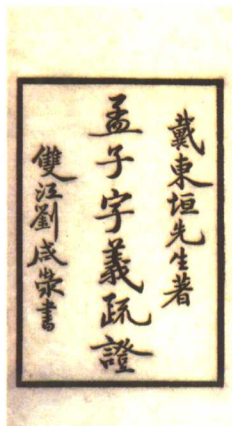 戴東垣先生著
孟子字義疏證
雙江劉咸滎書